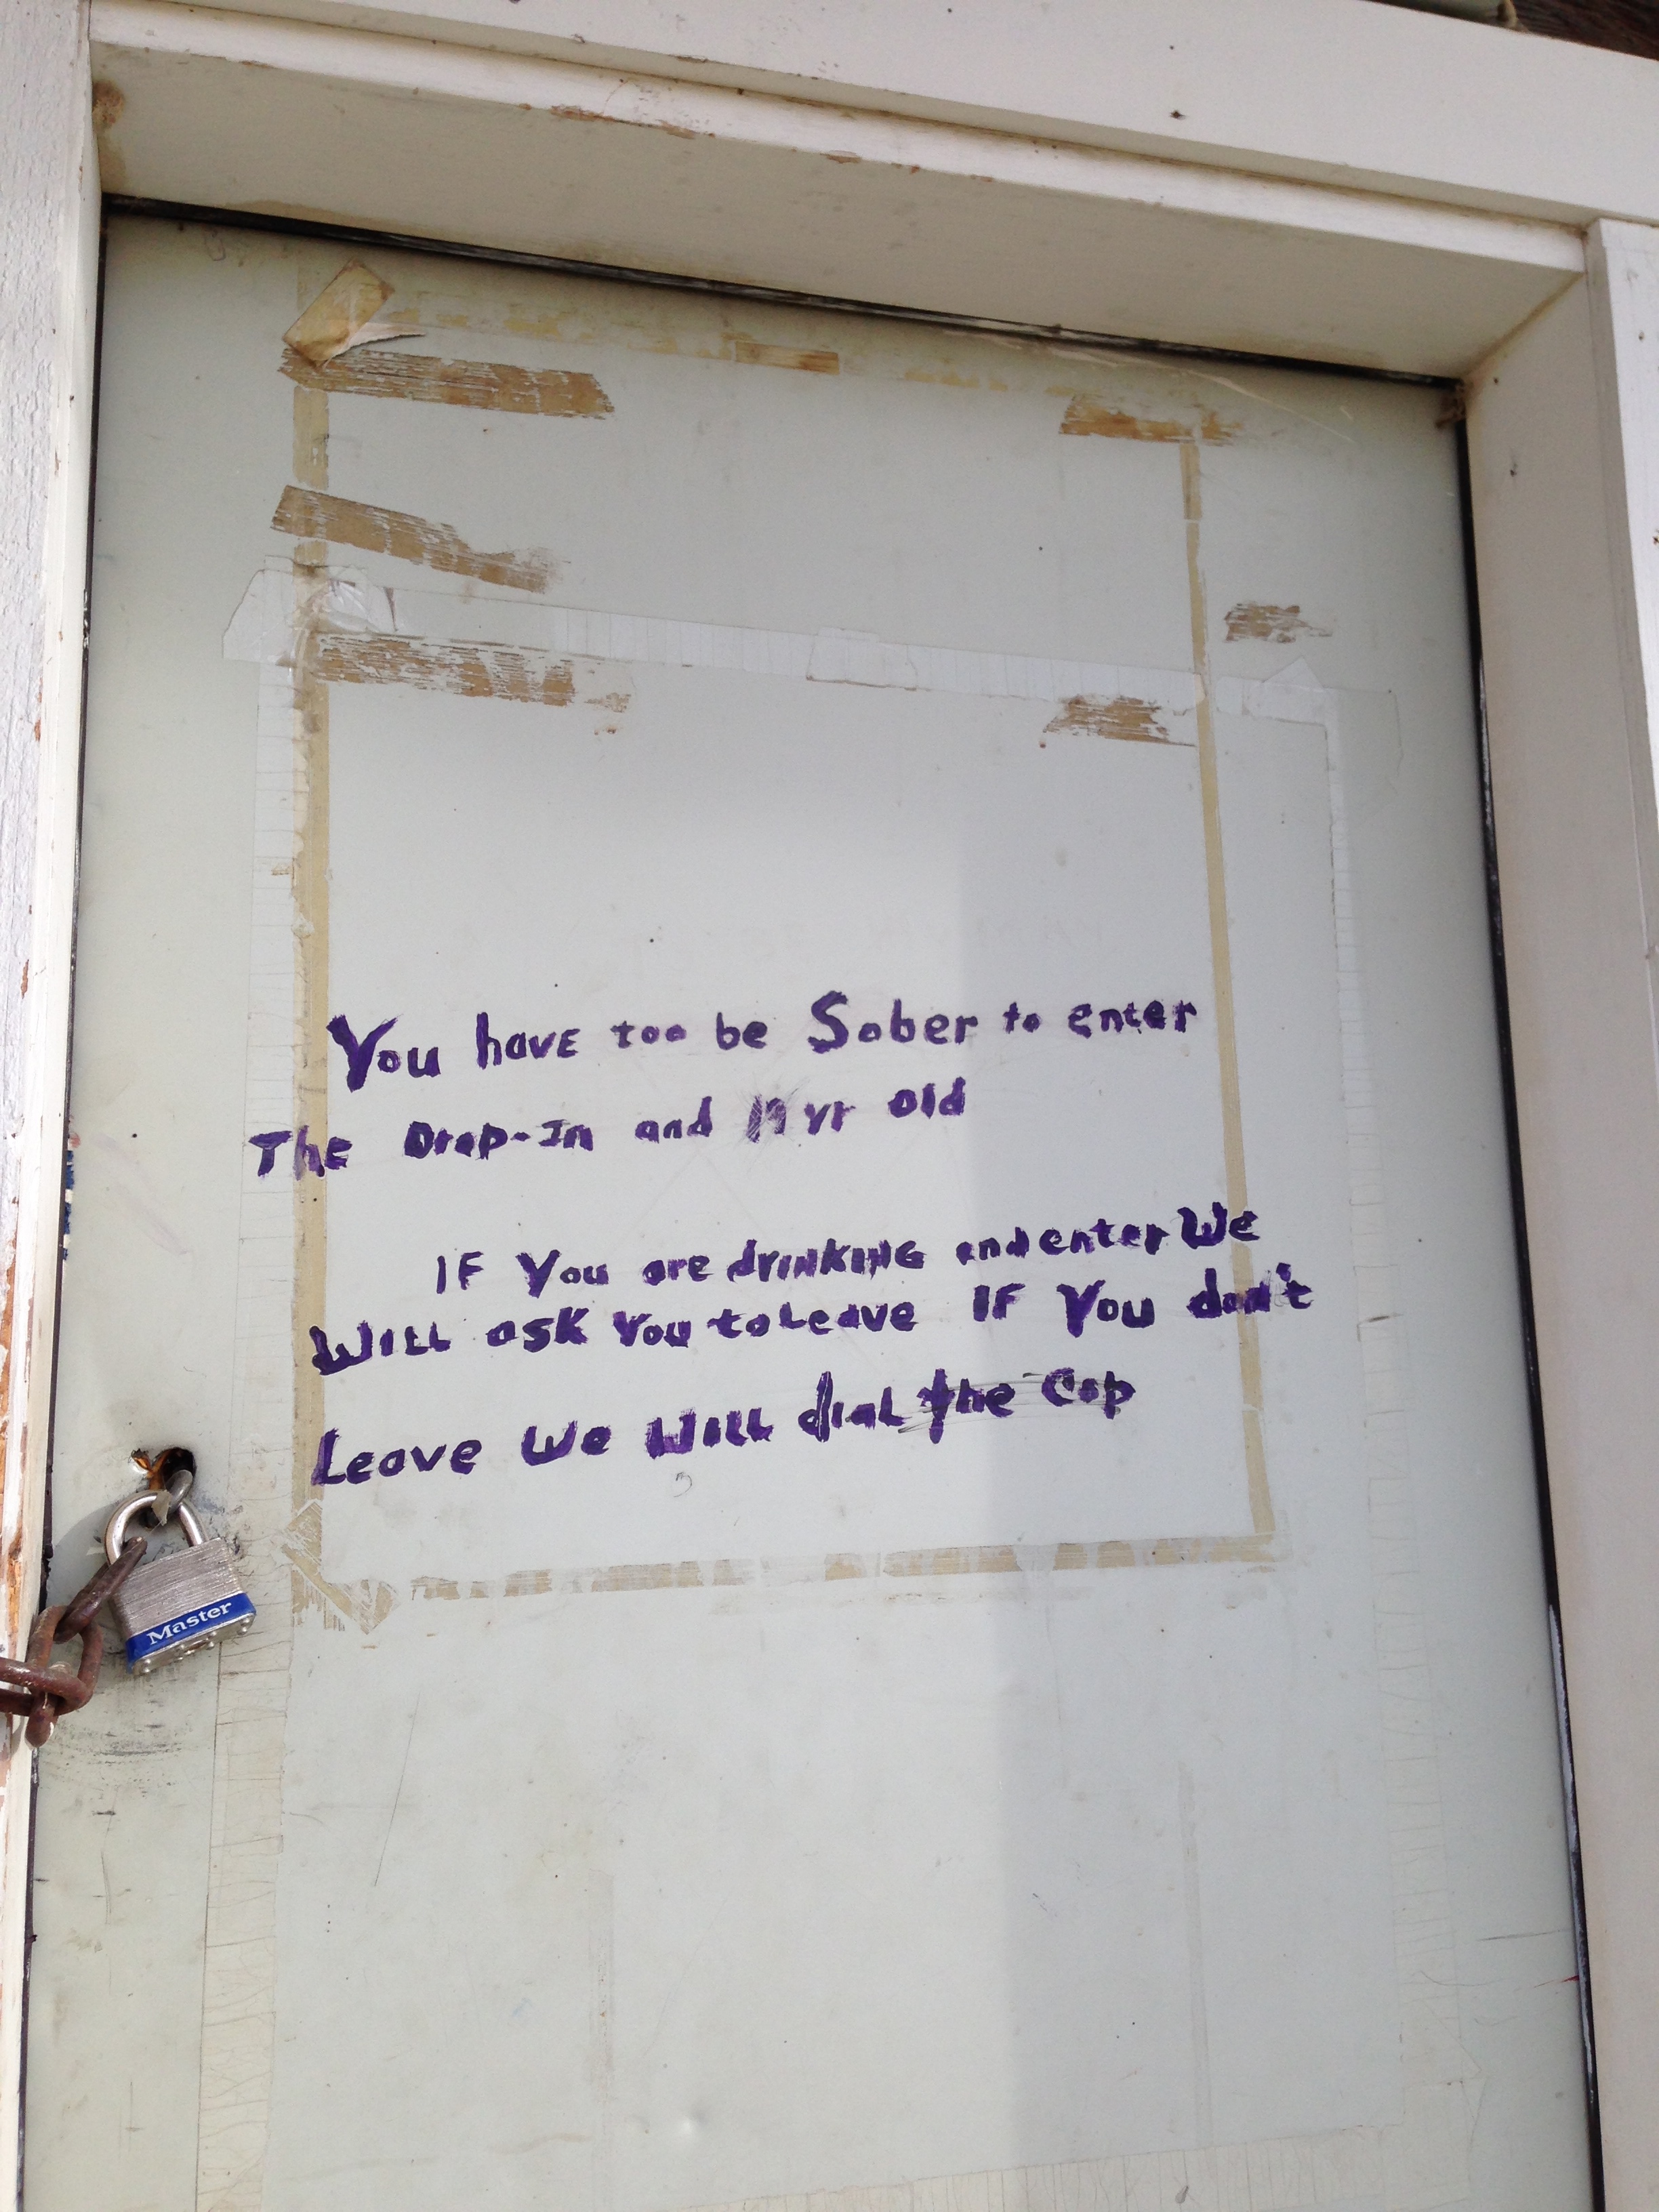 You have too be Sober to enter
The Drop-In and yr old
IF You are drINKING and enter We
WILL ask You to Leave IF You don't
Leave We WILL dial the Cop
Master